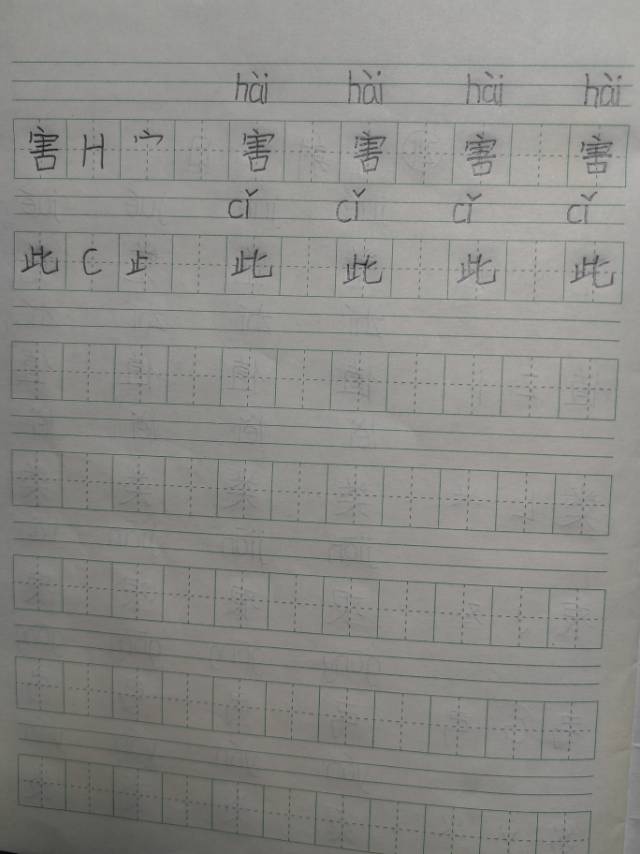 hài hài hài hài
害 H 宀 害 害 害 害
cǐ cǐ cǐ cǐ
此 C 止 此 此 此 此